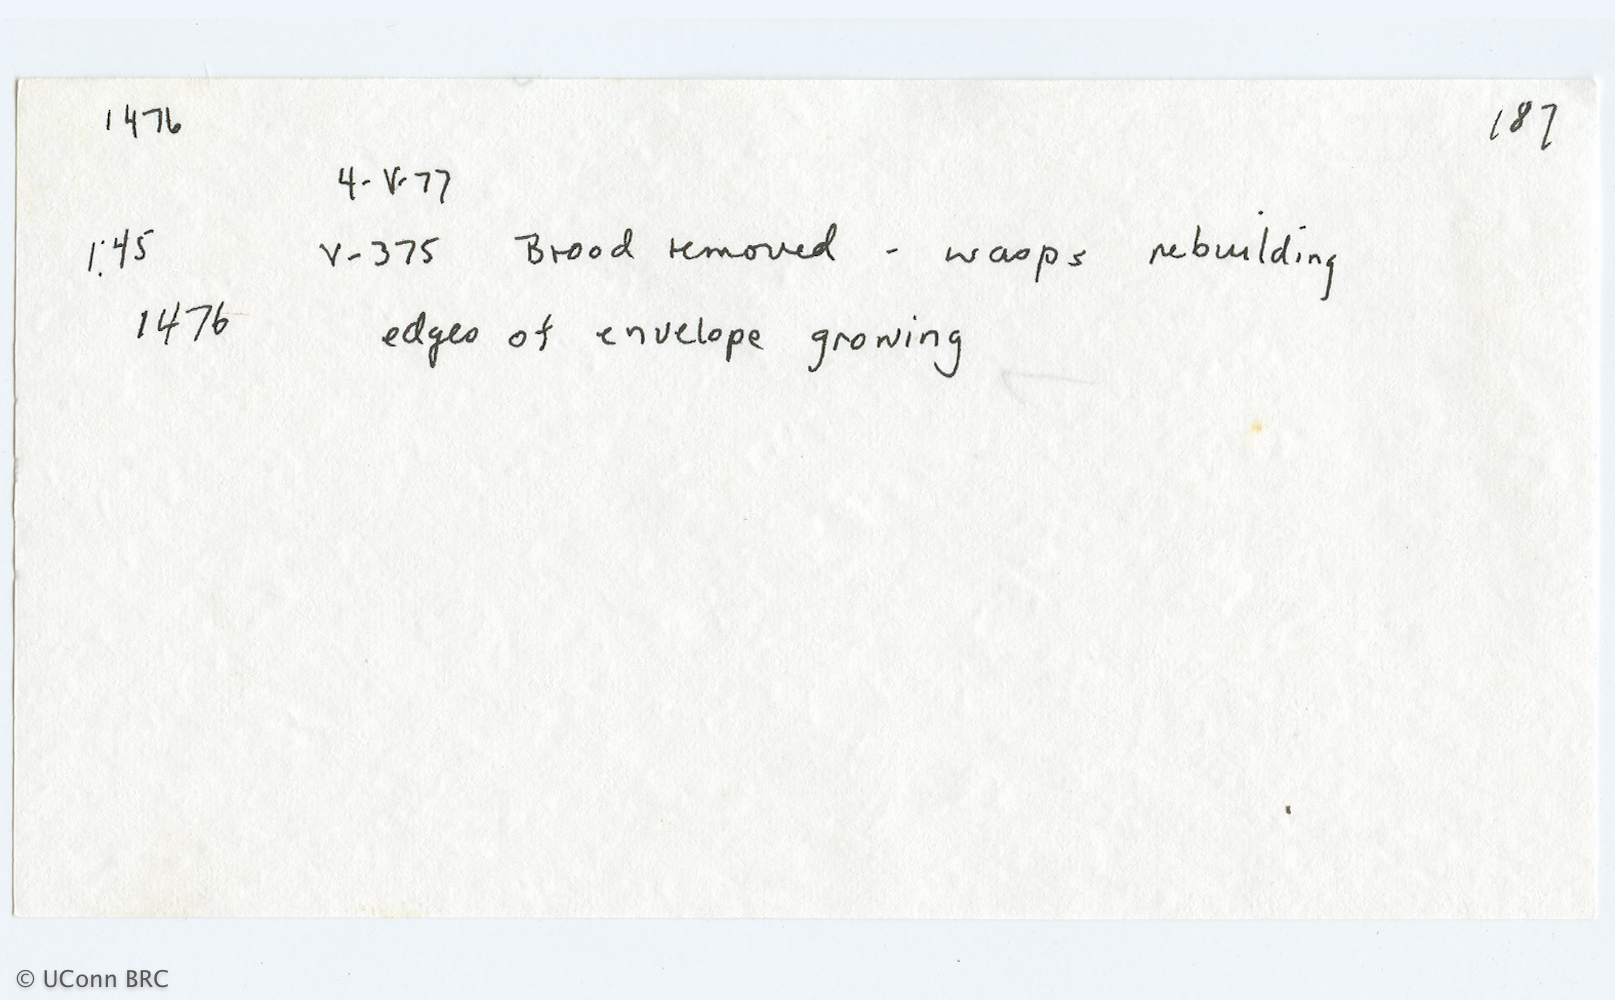 1476 187
4-V-77
1:45 V-375 Brood removed - wasps rebuilding
1476 edges of envelope growing
© UConn BRC